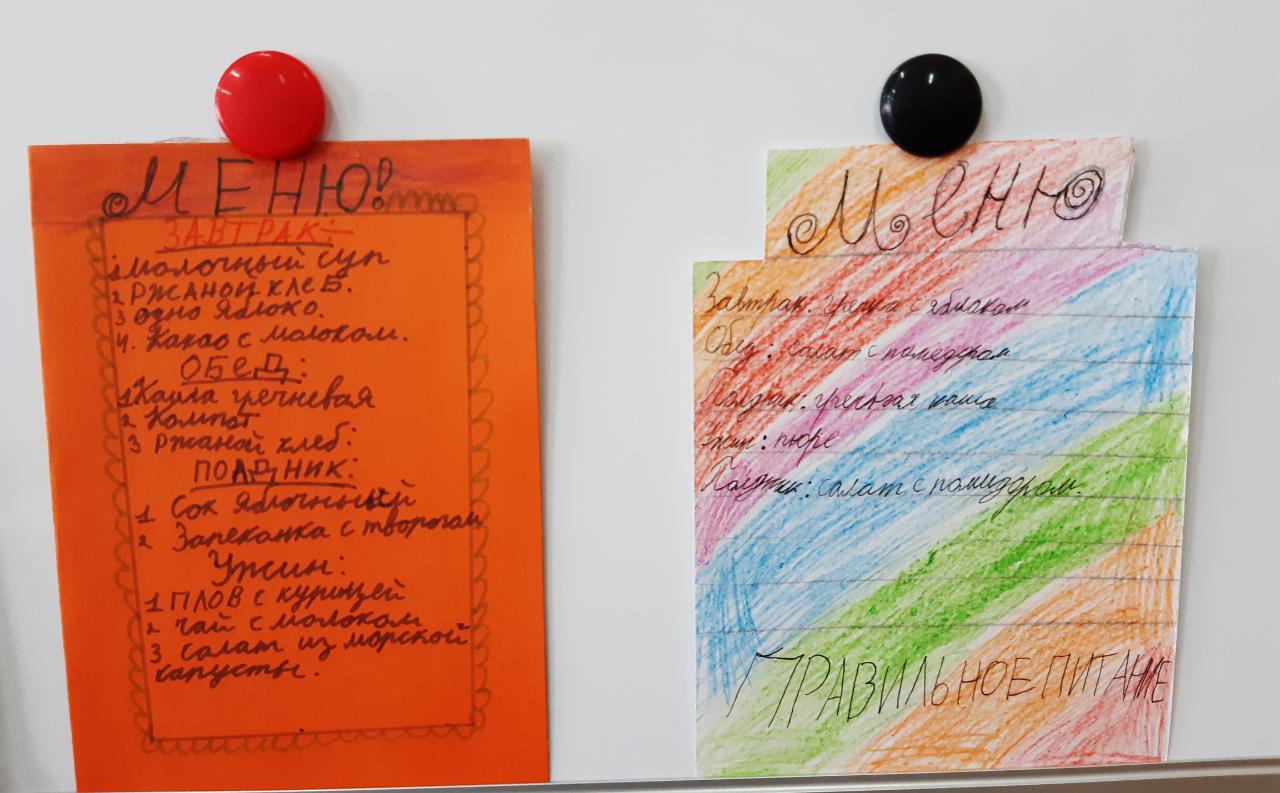 МЕНЮ!
ЗАВТРАК:
1. Молочный суп
2 Ржаной хлеб.
3 одно яблоко.
4. Какао с молоком.
ОБЕД:
1 Каша гречневая
2 Компот
3 Ржаной хлеб:
ПОЛДНИК:
1 Сок яблочный
2 Запеканка с творогом
Ужин:
1 ПЛОВ с курицей
2 чай с молоком
3 салат из морской
капусты.
Меню
Завтрак: гречка с яблоком
Обед: салат с помедором
Полдник: греченая каша
Ужин: пюре
Полдник: салат с помидором.
ПРАВИЛЬНОЕ ПИТАНИЕ